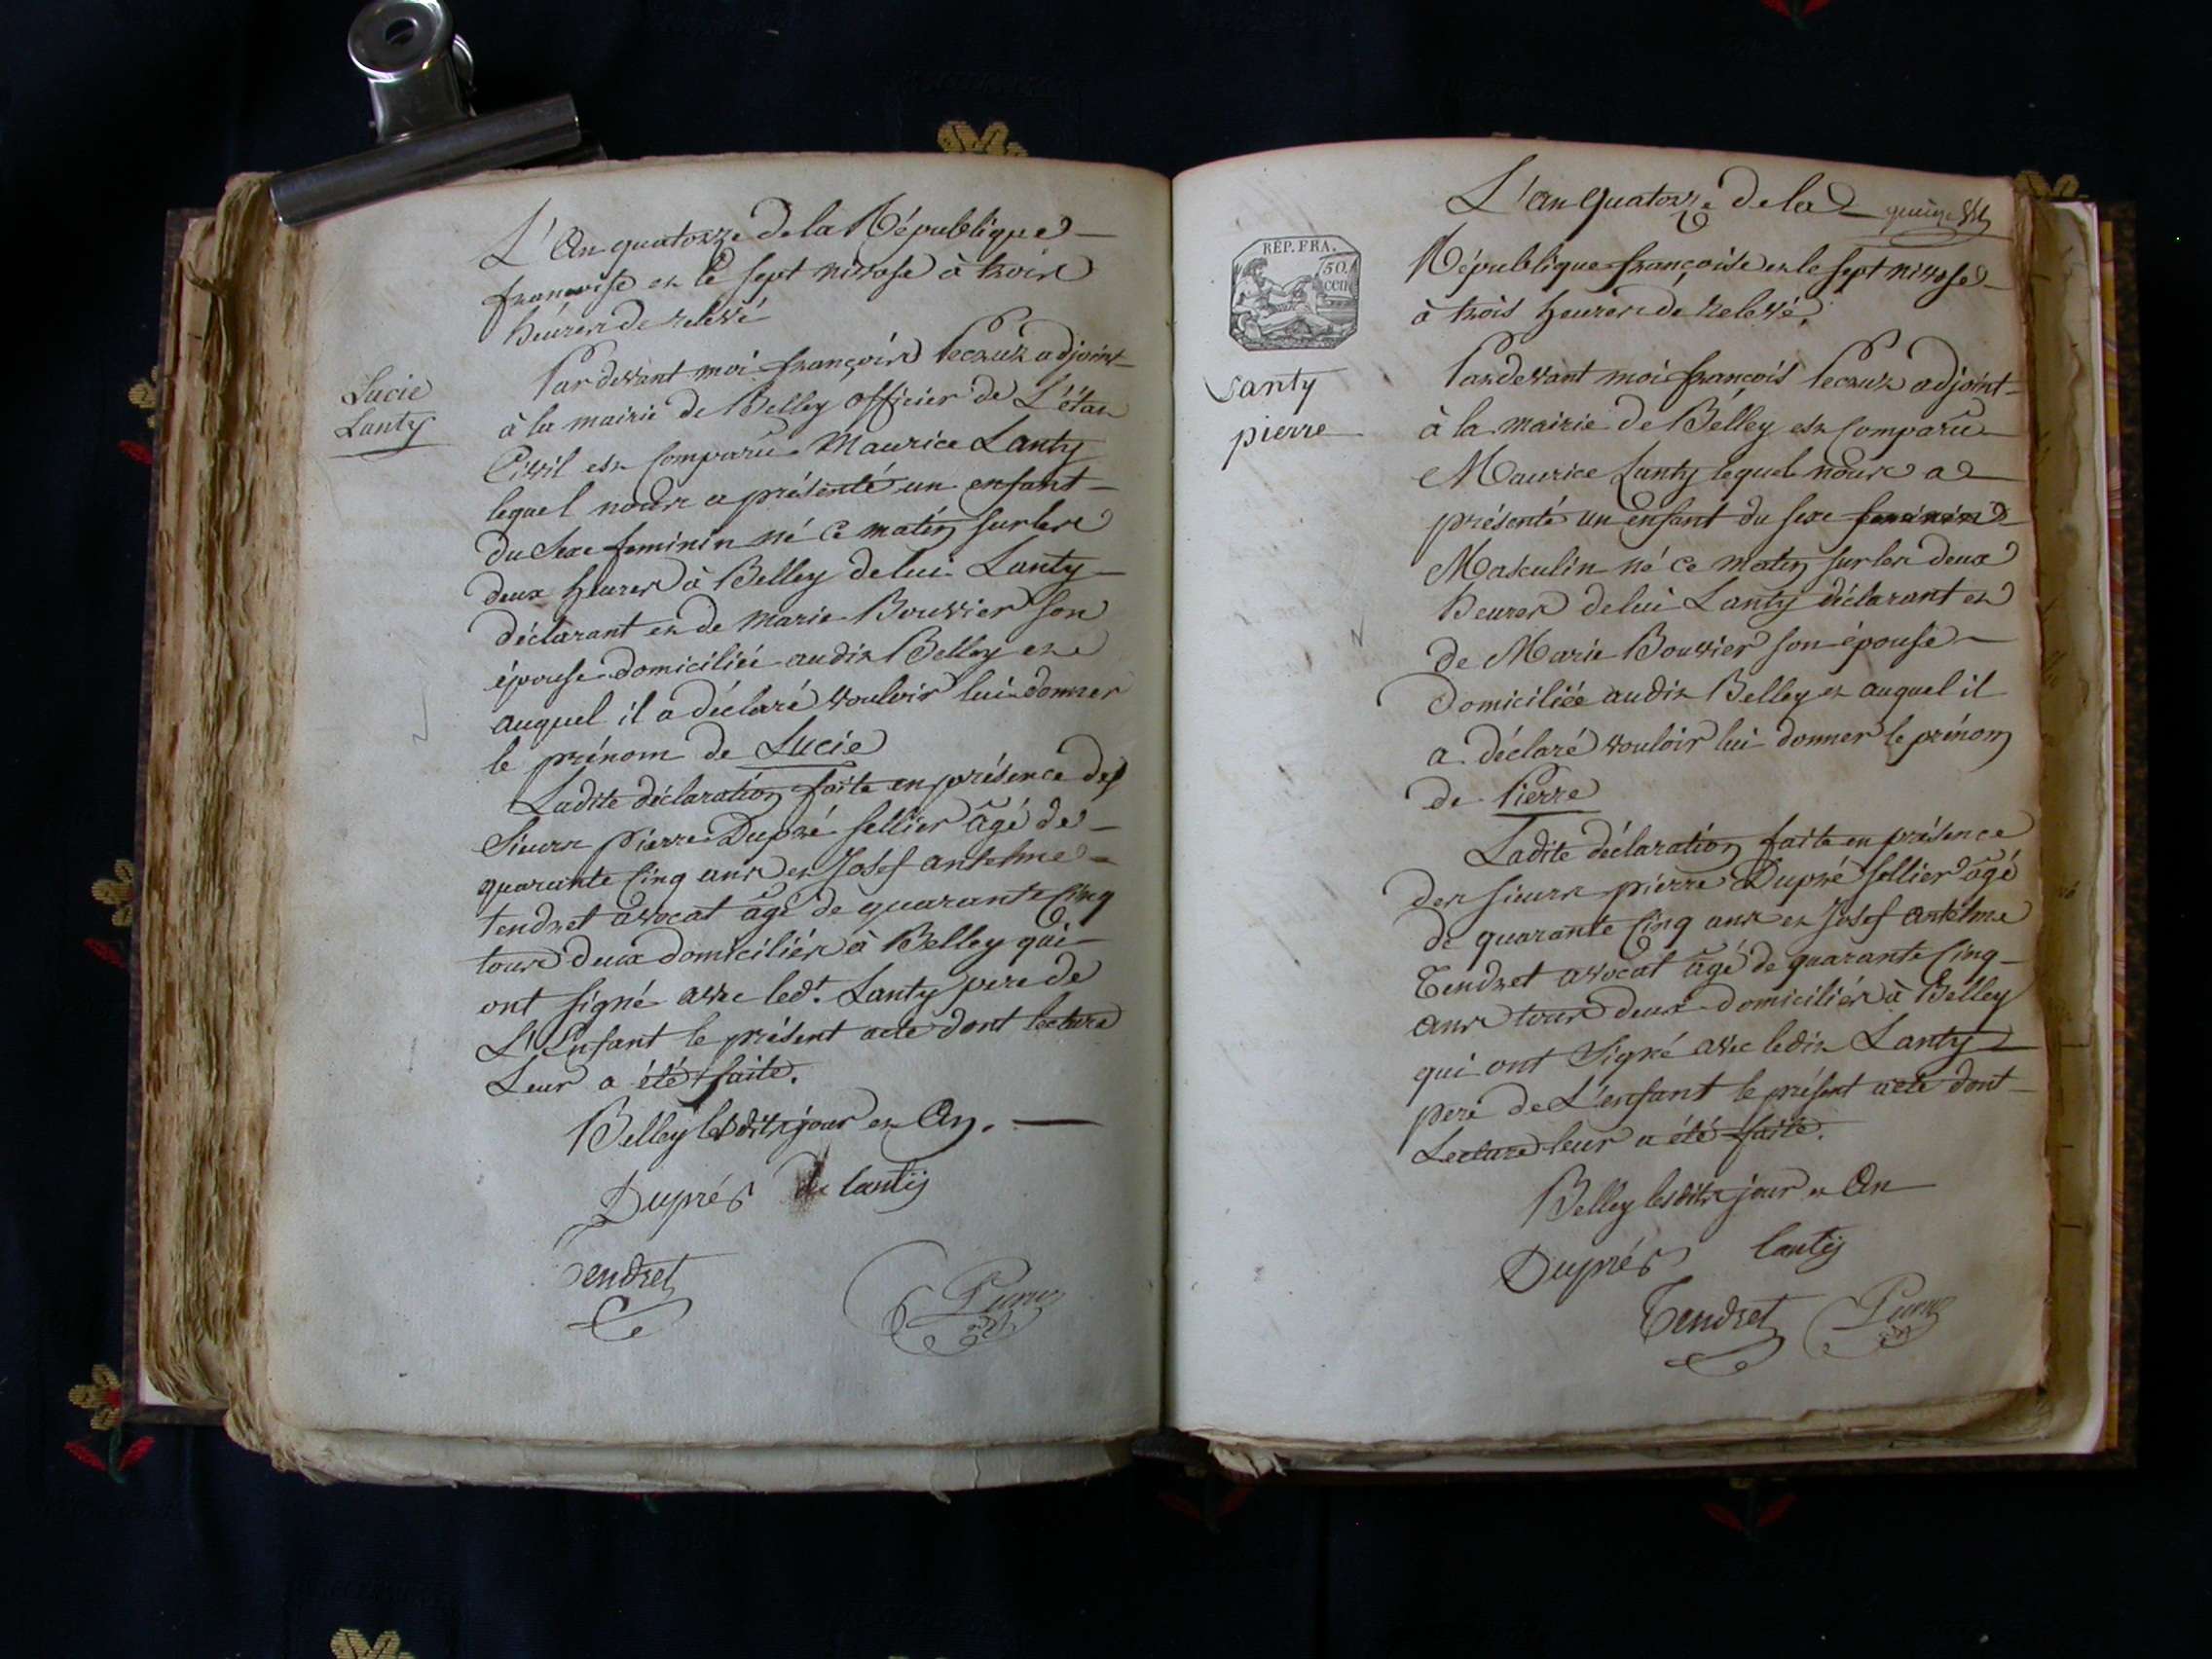 L'An quatorze de la République
françoise et le sept nivose à trois
heures de relevé
Lucie
Lanty
Par devant moi françois Pecaux adjoint
à la mairie de Belley officier de L'état
Civil est Comparû Maurice Lanty
lequel nous a présenté un enfant
du sexe feminin né ce matin sur les
deux heures à Belley de lui Lanty
déclarant et de marie Bouvier son
épouse domiciliée audit Belley et
auquel il a déclaré vouloir lui donner
le prénom de Lucie
Ladite déclaration faite en présence des
Sieurs pierre Dupré sellier âgé de
quarante Cinq ans et Josef antelme
tendret avocat âgé de quarante Cinq
tous deux domiciliés à Belley qui
ont signé avec led.t Lanty pere de
L'Enfant le présent acte dont lecture
Leur a été faite.
Belley lesdits jour et An.
Duprés lantij
Tendret
L'an quatorze de la
REP. FRA.
50
cen
République françoise et le sept nivose
à trois heures de relevé.
Lanty
pierre
Pardevant moi françois Pecaux adjoint
à la mairie de Belley est Comparû
Maurice Lanty lequel nous a
présenté un enfant du sexe feminin
Masculin né ce matin sur les deux
heures de lui Lanty déclarant et
de Marie Bouvier son épouse
Domiciliée audit Belley et auquel il
a déclaré vouloir lui donner le prénom
de Pierre
Ladite déclaration faite en présence
des sieurs pierre Dupré sellier âgé
de quarante Cinq ans et Josef antelme
Tendret avocat âgé de quarante Cinq
ans tous deux domiciliés à Belley
qui ont Signé avec ledit Lanty
pere de L'enfant le présent acte dont
Lecture leur a été faite.
Belley lesdits jour et An
Duprés lantij
Tendret